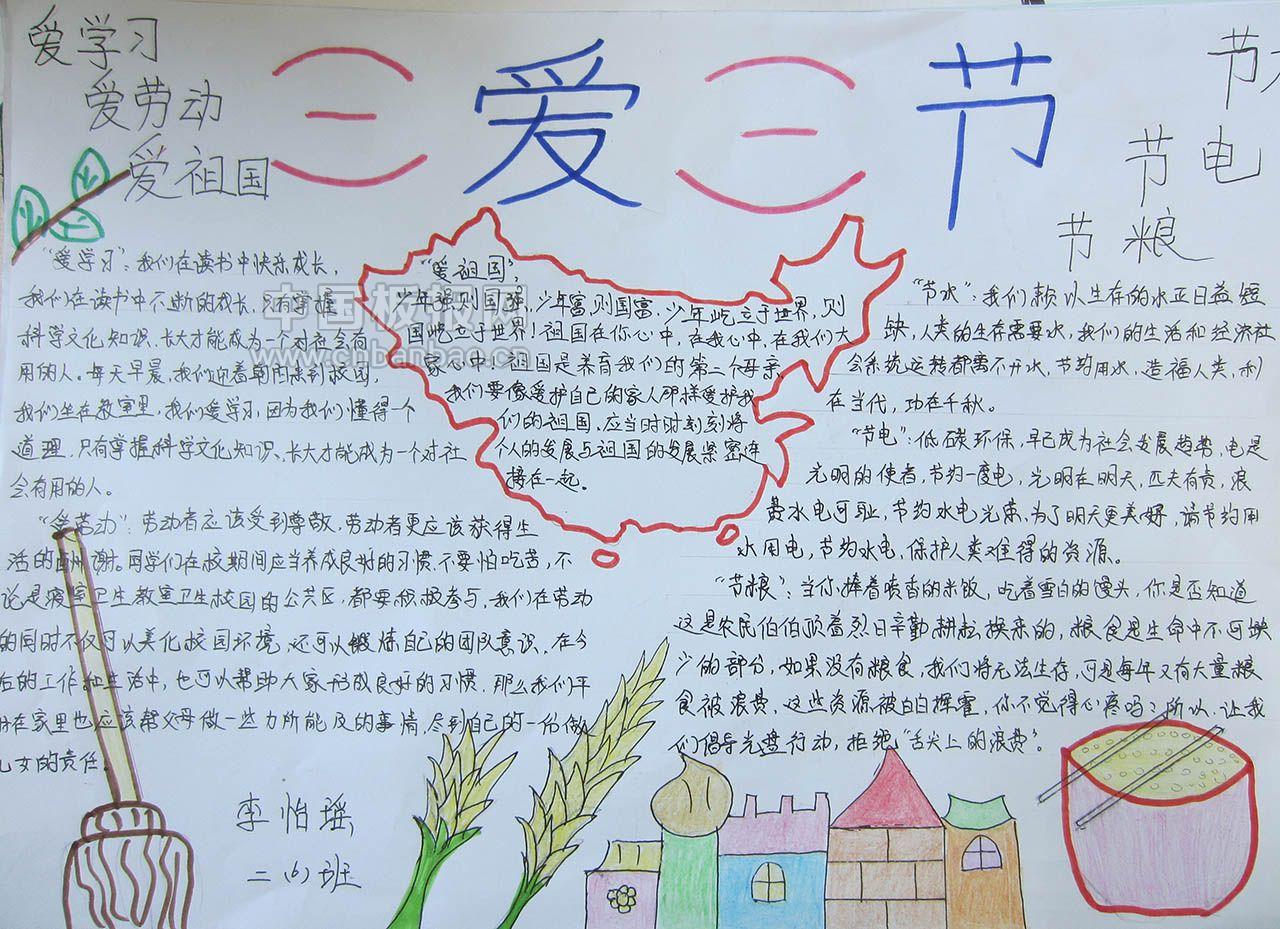 爱学习
爱劳动
爱祖国
三爱三节
节
节电
节粮
"爱学习"：我们在读书中快乐成长，
我们在读书中不断的成长，只有掌握
科学文化知识、长大才能成为一个对社会有
用的人。每天早晨，我们迎着朝阳来到校园，
我们坐在教室里，我们爱学习，因为我们懂得一个
道理，只有掌握科学文化知识、长大才能成为一个对社
会有用的人。
"爱劳动"：劳动者应该受到尊敬，劳动者更应该获得生
活的酬谢。同学们在校期间应当养成良好的习惯，不要怕吃苦，不
论是寝室卫生教室卫生校园的公共区，都要积极参与，我们在劳动
的同时不仅可以美化校园环境，还可以锻炼自己的团队意识，在今
后的工作和生活中，也可以帮助大家形成良好的习惯，那么我们平
时在家里也应该帮父母做一些力所能及的事情，尽到自己的一份做
儿女的责任。
李怡瑶
二（6）班
"爱祖国"，
少年强则国强，少年富则国富，少年屹立于世界，则
国屹立于世界！祖国在你心中，在我心中，在我们大
家心中！祖国是养育我们的第二个母亲，
我们要像爱护自己的家人那样爱护我
们的祖国，应当时时刻刻将
个人的发展与祖国的发展紧密连
接在一起。
"节水"：我们赖以生存的水正日益短
缺，人类的生存需要水，我们的生活和经济社
会系统运转都离不开水，节约用水，造福人类，利
在当代，功在千秋。
"节电"：低碳环保，早已成为社会发展趋势，电是
光明的使者，节约一度电，光明在明天，匹夫有责，浪
费水电可耻，节约水电光荣，为了明天更美好，请节约用
水用电，节约水电，保护人类难得的资源。
"节粮"：当你捧着喷香的米饭，吃着雪白的馒头，你是否知道
这是农民伯伯顶着烈日辛勤耕耘换来的，粮食是生命中不可缺
少的部分，如果没有粮食，我们将无法生存，可是每年又有大量粮
食被浪费，这些资源被白白挥霍，你不觉得心疼吗？所以，让我
们倡导光盘行动，拒绝"舌尖上的浪费"。
中国板报网
www.chbanbao.cn